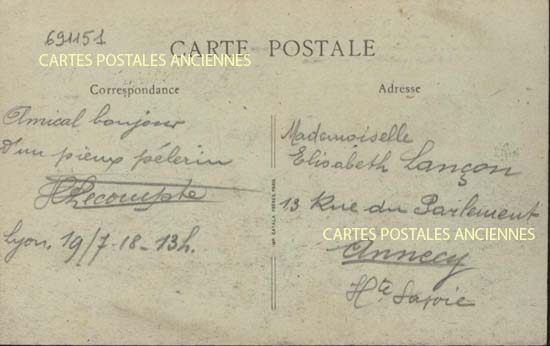 691151
CARTE POSTALE
CARTES POSTALES ANCIENNES
Correspondance
Amical bonjour
D'un pieux pélerin
HLecompte
Lyon. 19/7-18-13h.
IMP. CATALA FRÈRES, PARIS
Adresse
Mademoiselle
Elisabeth Lançon
13 Rue du Parlement
CARTES POSTALES ANCIENNES
Annecy
Hte Savoie